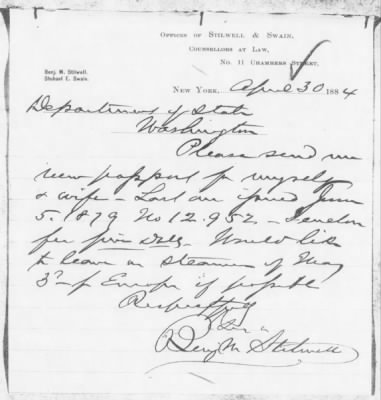 Offices of Stilwell & Swain,
Counsellors at Law,
No. 11 Chambers Street,
Benj. M. Stilwell.
Stukuel E. Swain.
New York, April 30 1884
Department of State
Washington
Please send me
new passport for myself
& wife - Last one issued June
5. 1879 No 12.952 - I enclose
fee five Dolls. Would like
to leave on steamer of May
3rd for Europe if possible
Respectfully
Benj M. Stilwell